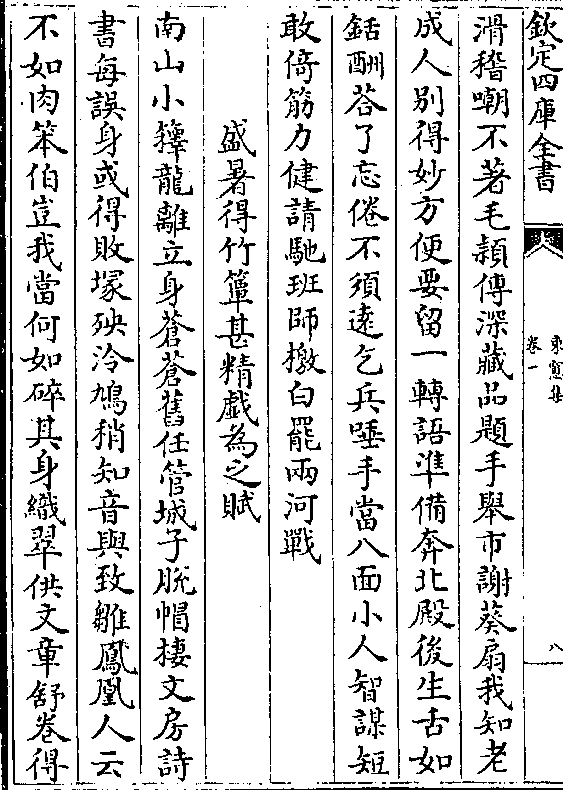 欽定四庫全書
東窻集
卷一
八
滑稽嘲不著毛頴傳深藏品題手舉市謝葵扇我知老
成人别得妙方便要留一轉語準備奔北殿後生舌如
銛酬荅了忘倦不須遠乞兵唾手當八面小人智謀短
敢倚筋力健請馳班師檄白罷兩河戰
盛暑得竹簟甚精戯為之賦
南山小籜龍離立身蒼蒼舊任管城子脫帽棲文房詩
書每誤身或得敗塚殃泠鳩稍知音與致雛鳳凰人云
不如肉笨伯豈我當何如碎其身織翠供文章舒卷得